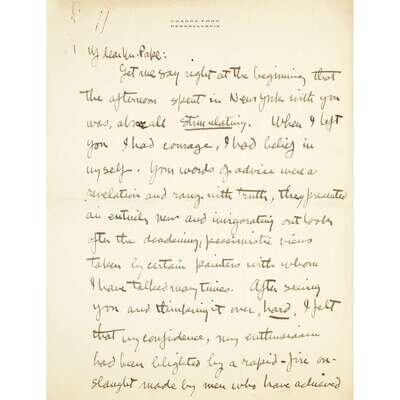 CHADDS FORD
PENNSYLVANIA
My dear Mr. Pape:
Let me say right at the beginning that
the afternoon spent in New York with you
was, above all stimulating. When I left
you I had courage, I had belief in
myself. Your words of advice were a
revelation and rang with truth, they presented
an entirely new and invigorating outlook
after the deadening, pessimistic views
taken by certain painters with whom
I have talked many times. After seeing
you and thinking it over, hard, I felt
that my confidence, my enthusiasm
had been blighted by a rapid-fire on-
slaught made by men who have achieved